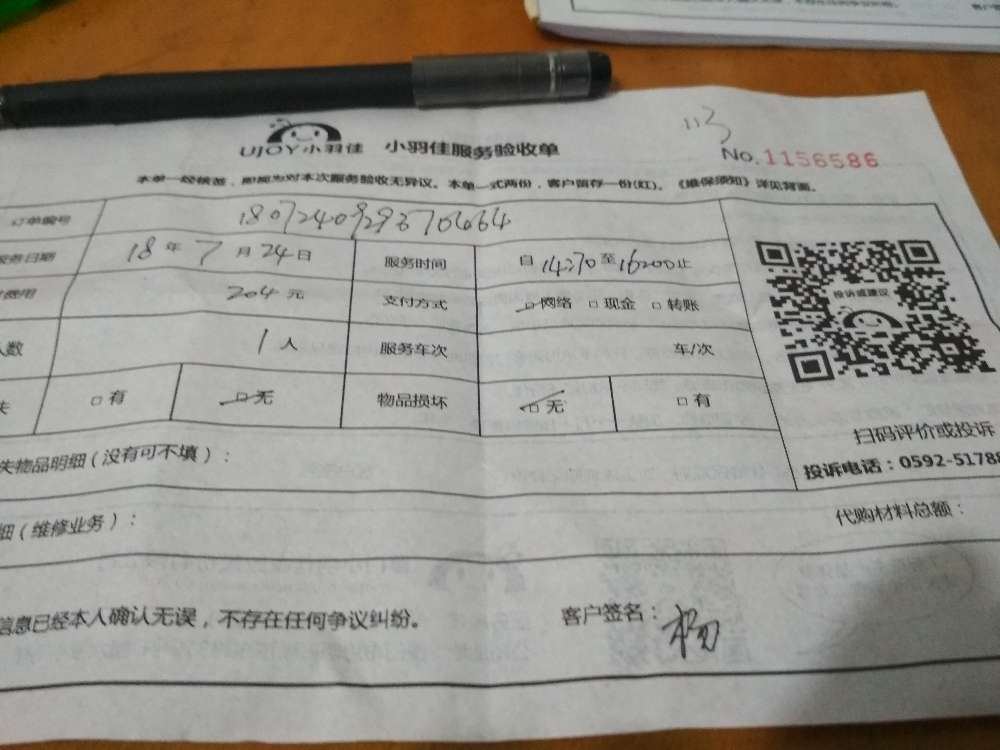 UJOY小羽佳 小羽佳服务验收单
No.1156586
本单一经核签，即视为对本次服务验收无异议。本单一式两份，客户留存一份(红)。《维保须知》详见背面。
订单编号 180724092937
服务日期 18年7月24日 服务时间 自 至 止
费用 204元 支付方式 □网络 □现金 □转账
人数 1人 服务车次 车/次
失 □有 □无 物品损坏 □无 □有
投诉或建议
扫码评价或投诉
投诉电话：0592-51788
失物品明细（没有可不填）：
细（维修业务）： 代购材料总额：
信息已经本人确认无误，不存在任何争议纠纷。 客户签名：杨